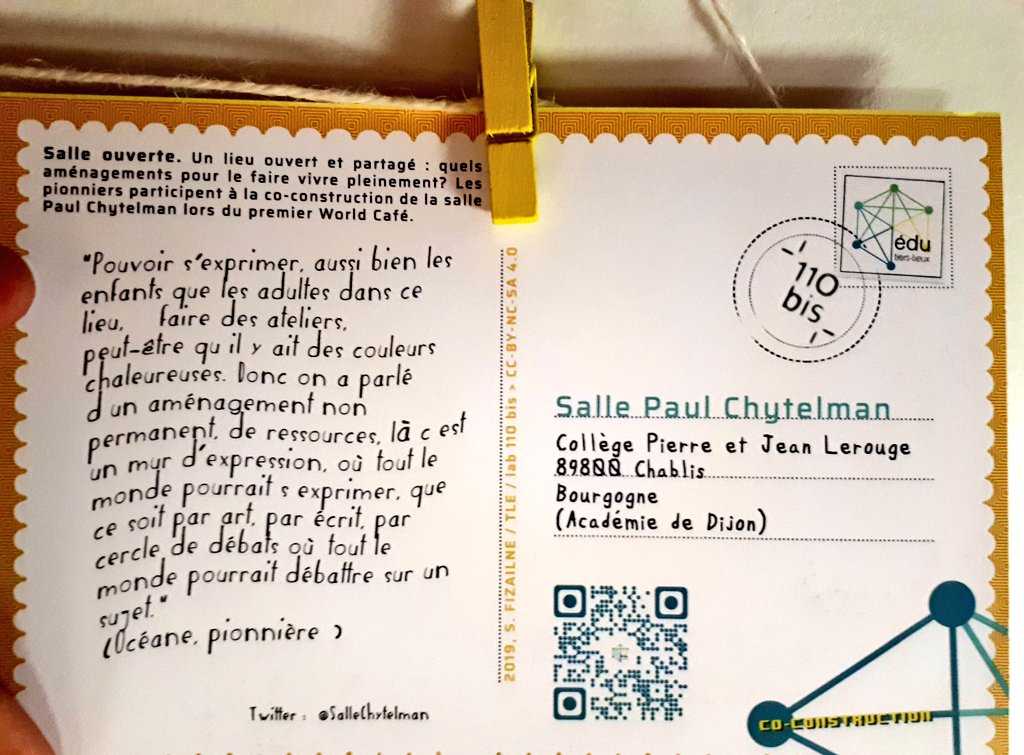 Salle ouverte. Un lieu ouvert et partagé : quels
aménagements pour le faire vivre pleinement? Les
pionniers participent à la co-construction de la salle
Paul Chytelman lors du premier World Café.
"Pouvoir s'exprimer, aussi bien les
enfants que les adultes dans ce
lieu, faire des ateliers,
peut-être qu il y ait des couleurs
chaleureuses. Donc on a parlé
d un aménagement non
permanent, de ressources, là c est
un mur d'expression, où tout le
monde pourrait s exprimer, que
ce soit par art, par écrit, par
cercle de débats où tout le
monde pourrait débattre sur un
sujet."
(Océane, pionnière )
Twitter : @SalleChytelman
2019, S. FIZAILNE / TLE / lab 110 bis > CC-BY-NC-SA 4.0
édu
tiers-lieux
110
bis
Salle Paul Chytelman
Collège Pierre et Jean Lerouge
89800 Chablis
Bourgogne
(Académie de Dijon)
CO-CONSTRUCTION